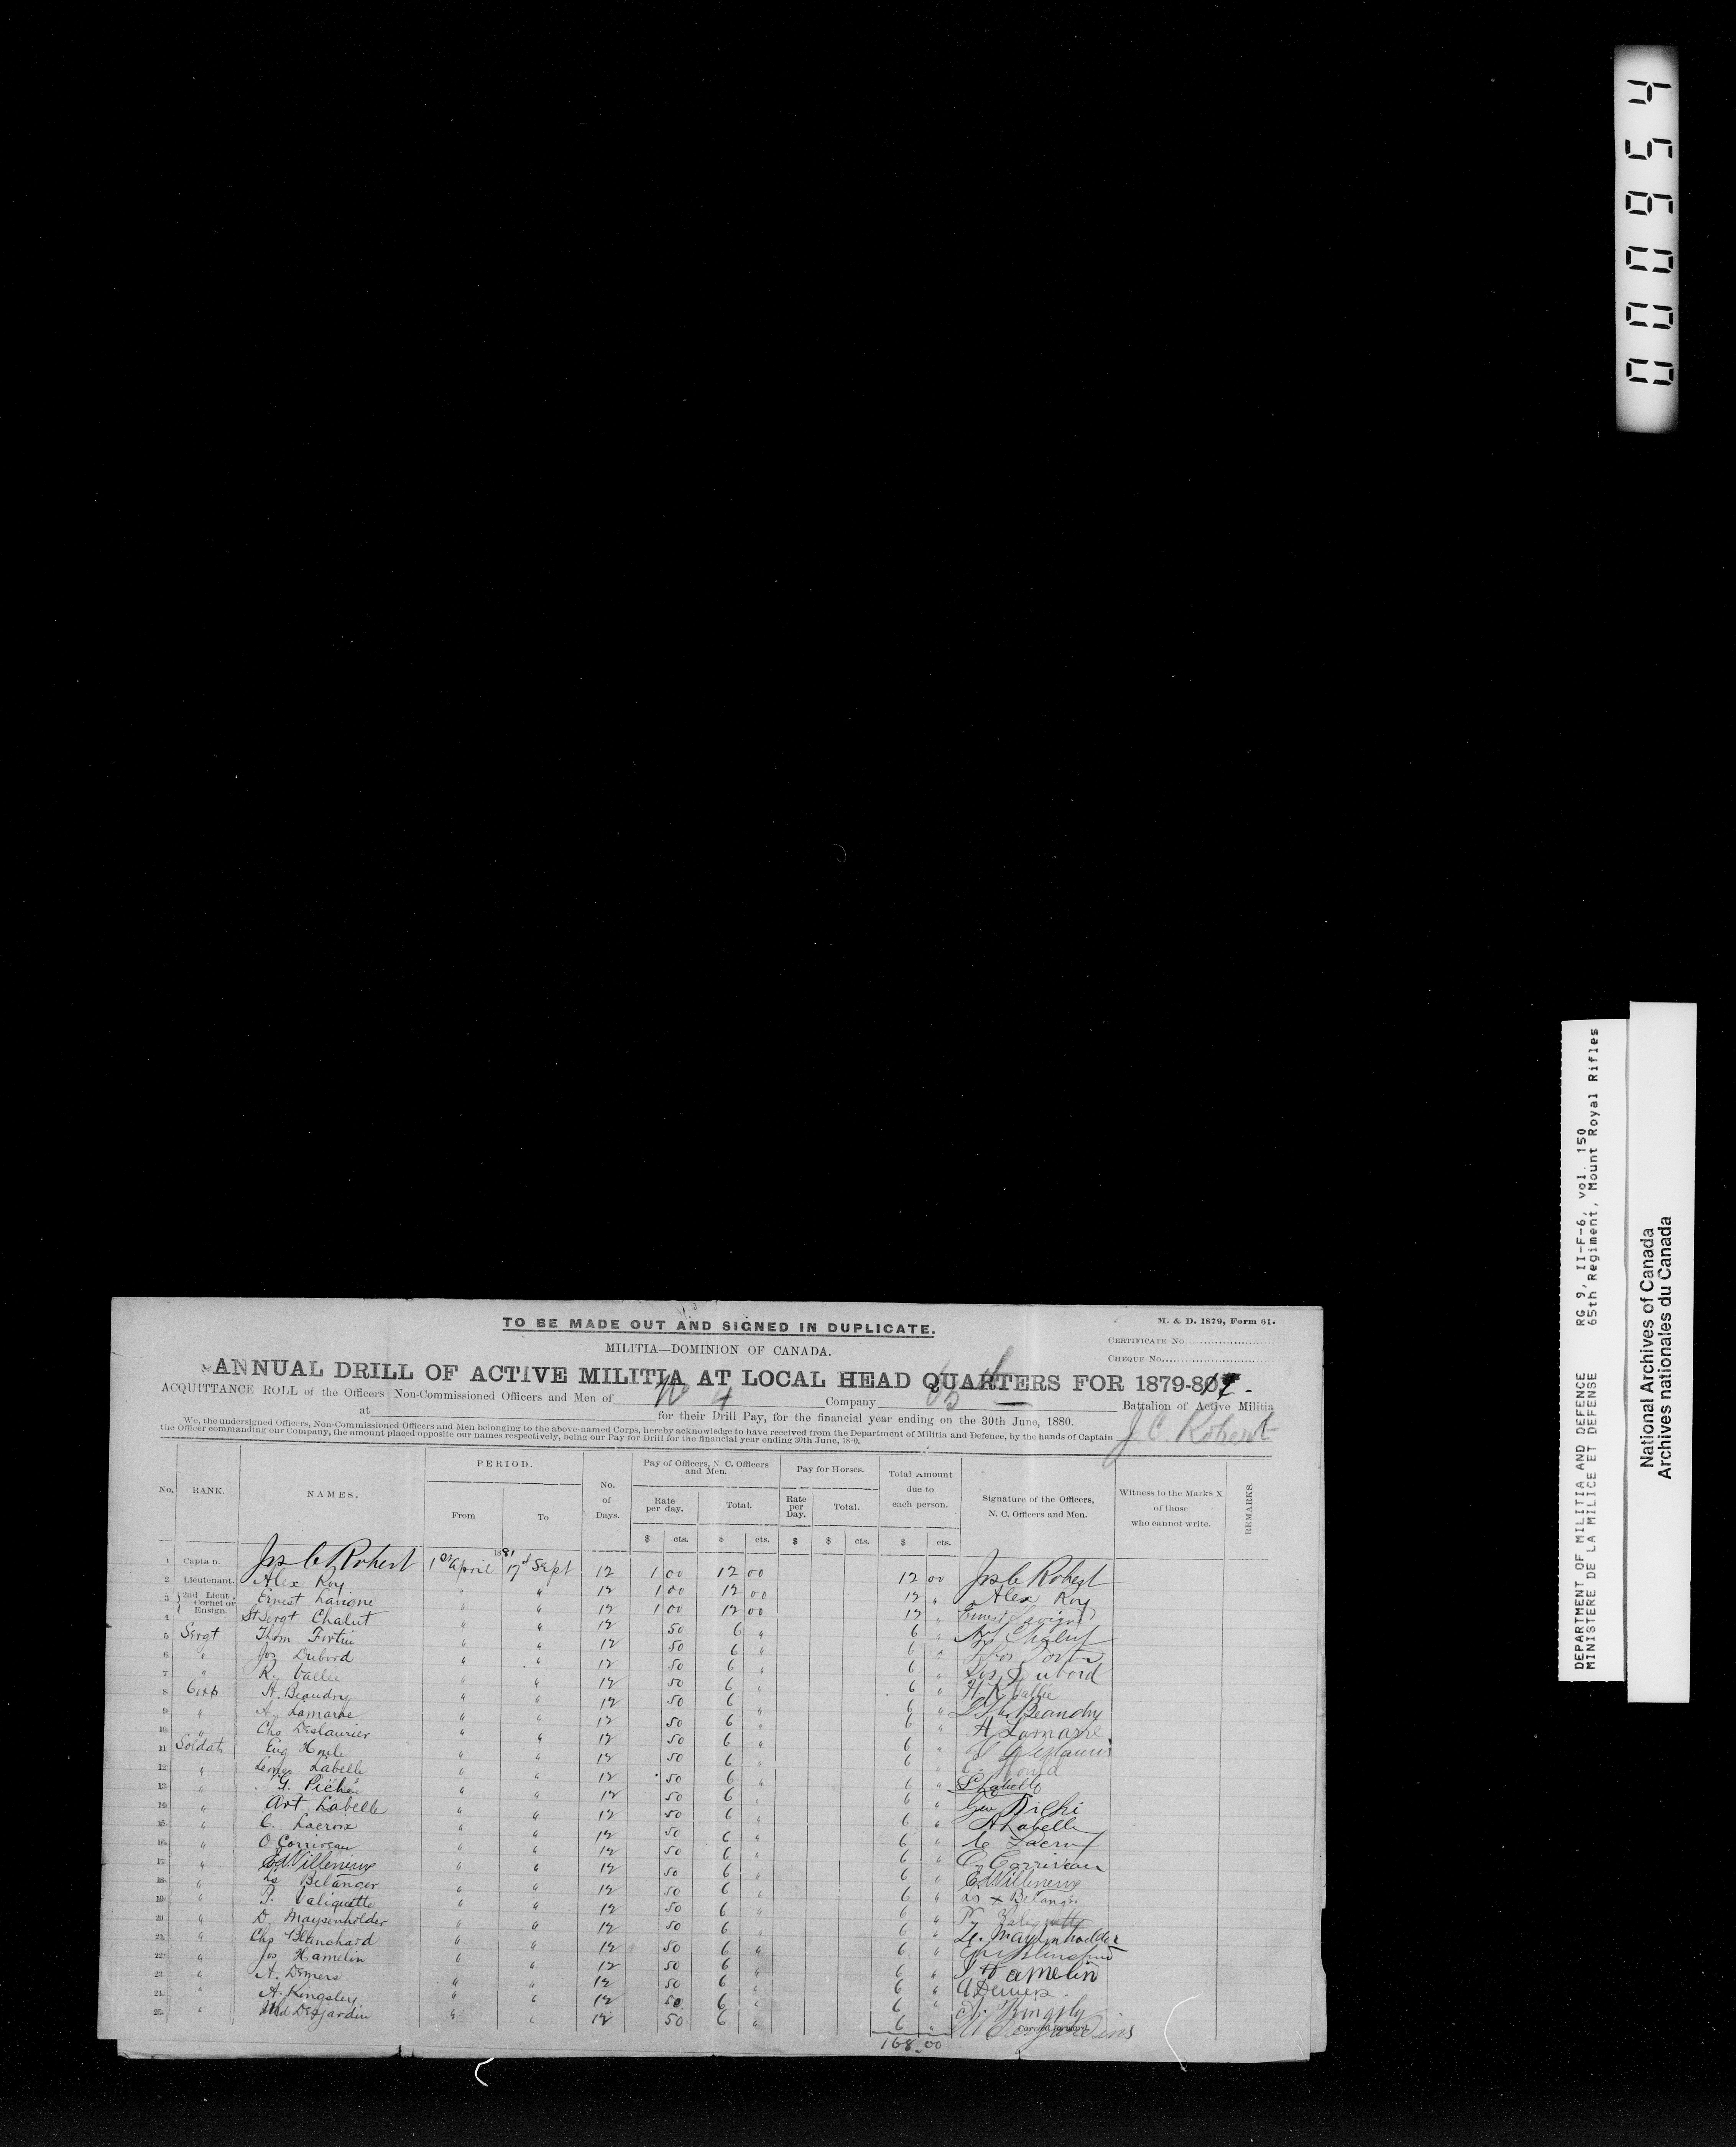 TO BE MADE OUT AND SIGNED IN DUPLICATE.
M. & D. 1879, Form 61.
MILITIA—DOMINION OF CANADA.
CERTIFICATE No.
CHEQUE No.
ANNUAL DRILL OF ACTIVE MILITIA AT LOCAL HEAD QUARTERS FOR 1879-80
ACQUITTANCE ROLL of the Officers Non-Commissioned Officers and Men of No 4 Company 65 Battalion of Active Militia
at for their Drill Pay, for the financial year ending on the 30th June, 1880.
We, the undersigned Officers, Non-Commissioned Officers and Men belonging to the above-named Corps, hereby acknowledge to have received from the Department of Militia and Defence, by the hands of Captain J C Robert
the Officer commanding our Company, the amount placed opposite our names respectively, being our Pay for Drill for the financial year ending 30th June, 1880.
No. RANK. NAMES. PERIOD. From To No. of Days. Pay of Officers, N. C. Officers and Men. Rate per day. Total. Pay for Horses. Rate per Day. Total. Total Amount due to each person. Signature of the Officers, N. C. Officers and Men. Witness to the Marks X of those who cannot write. REMARKS.
$ cts. $ cts. $ $ cts. $ cts.
1881
1 Captain. Jos C Robert 1st April 17 Sept 12 1 00 12 00 12 00 Jos C Robert
2 Lieutenant. Alex Roy " " 12 1 00 12 00 12 " Alex Roy
3 2nd Lieut Cornet or Ensign. Ernest Lavigne " " 12 1 00 12 00 12 " Ernest Lavigne
4 St Sergt Chalut " " 12 50 6 " 6 " Chalut
5 Sergt Thom Fortin " " 12 50 6 " 6 "
6 " Jos Dubord " " 12 50 6 " 6 " Jos Dubord
7 " R. Vallée " " 12 50 6 " 6 " Vallée
8 Corp H. Beaudry " " 12 50 6 " 6 " Beaudry
9 " A Lamarre " " 12 50 6 " 6 " A Lamarre
10 " Chs Deslaurier " " 12 50 6 " 6 "
11 Soldat Eug " " 12 50 6 " 6 "
12 " Labelle " " 12 50 6 " 6 " L Labelle
13 " G. Piché " " 12 50 6 " 6 " Geo Pichi
14 " Art Labelle " " 12 50 6 " 6 " A Labelle
15 " C. Lacroix " " 12 50 6 " 6 " C Lacroix
16 " O Corriveau " " 12 50 6 " 6 " O Corriveau
17 " Ed Villeneuve " " 12 50 6 " 6 " Ed Villeneuve
18 " Ls Belanger " " 12 50 6 " 6 " Ls x Belanger
19 " P. Valiquette " " 12 50 6 " 6 " P Valiquette
20 " D. Maysenholder " " 12 50 6 " 6 "
21 " Chs Blanchard " " 12 50 6 " 6 "
22 " Jos Hamelin " " 12 50 6 " 6 " J Hamelin
23 " A. Demers " " 12 50 6 " 6 " A Demers
24 " A. Kingsley " " 12 50 6 " 6 " A. Kingsly
25 " Desjardin " " 12 50 6 " 6 " Desjardins
Carried forward
168.00
000954
DEPARTMENT OF MILITIA AND DEFENCE RG 9, II-F-6, vol. 150
MINISTERE DE LA MILICE ET DEFENSE 65th Regiment, Mount Royal Rifles
National Archives of Canada
Archives nationales du Canada